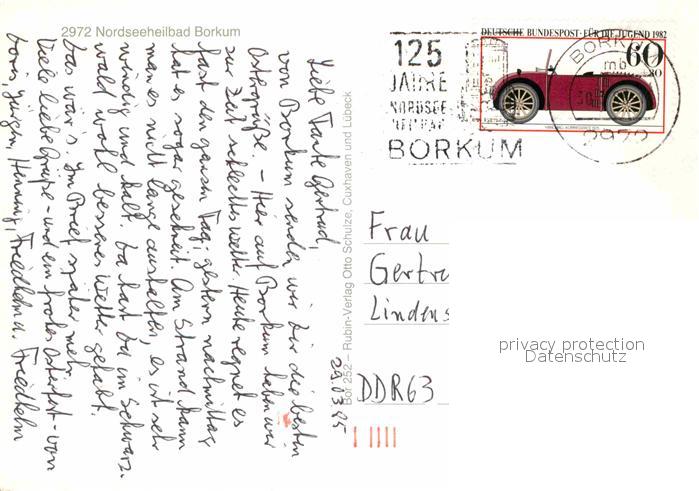 2972 Nordseeheilbad Borkum
Liebe Tante Gertrud,
von Borkum senden wir Dir die besten
Ostergrüße. – Hier auf Borkum haben wir
zur Zeit schlechtes Wetter. Heute regnet es
fast den ganzen Tag; gestern nachmittag
hat es sogar geschneit. Am Strand kann
man es nicht lange aushalten, es ist sehr
windig und kalt. Da hast Du im Schwarz-
wald wohl besseres Wetter gehabt.
Das wär's. Im Brief später mehr.
Viele liebe Grüße – und ein frohes Osterfest – von
Doris, Jürgen, Henning, Friedhelm u. Friedhelm
29.03.85
Bor 252 – Rubin-Verlag Otto Schulze, Cuxhaven und Lübeck
125
JAHRE
NORDSEE
HEILBAD
BORKUM
DEUTSCHE BUNDESPOST · FÜR DIE JUGEND 1982
60
BORKUM
mb
2972
Frau
Gertru
Lindens
DDR 63
privacy protection
Datenschutz